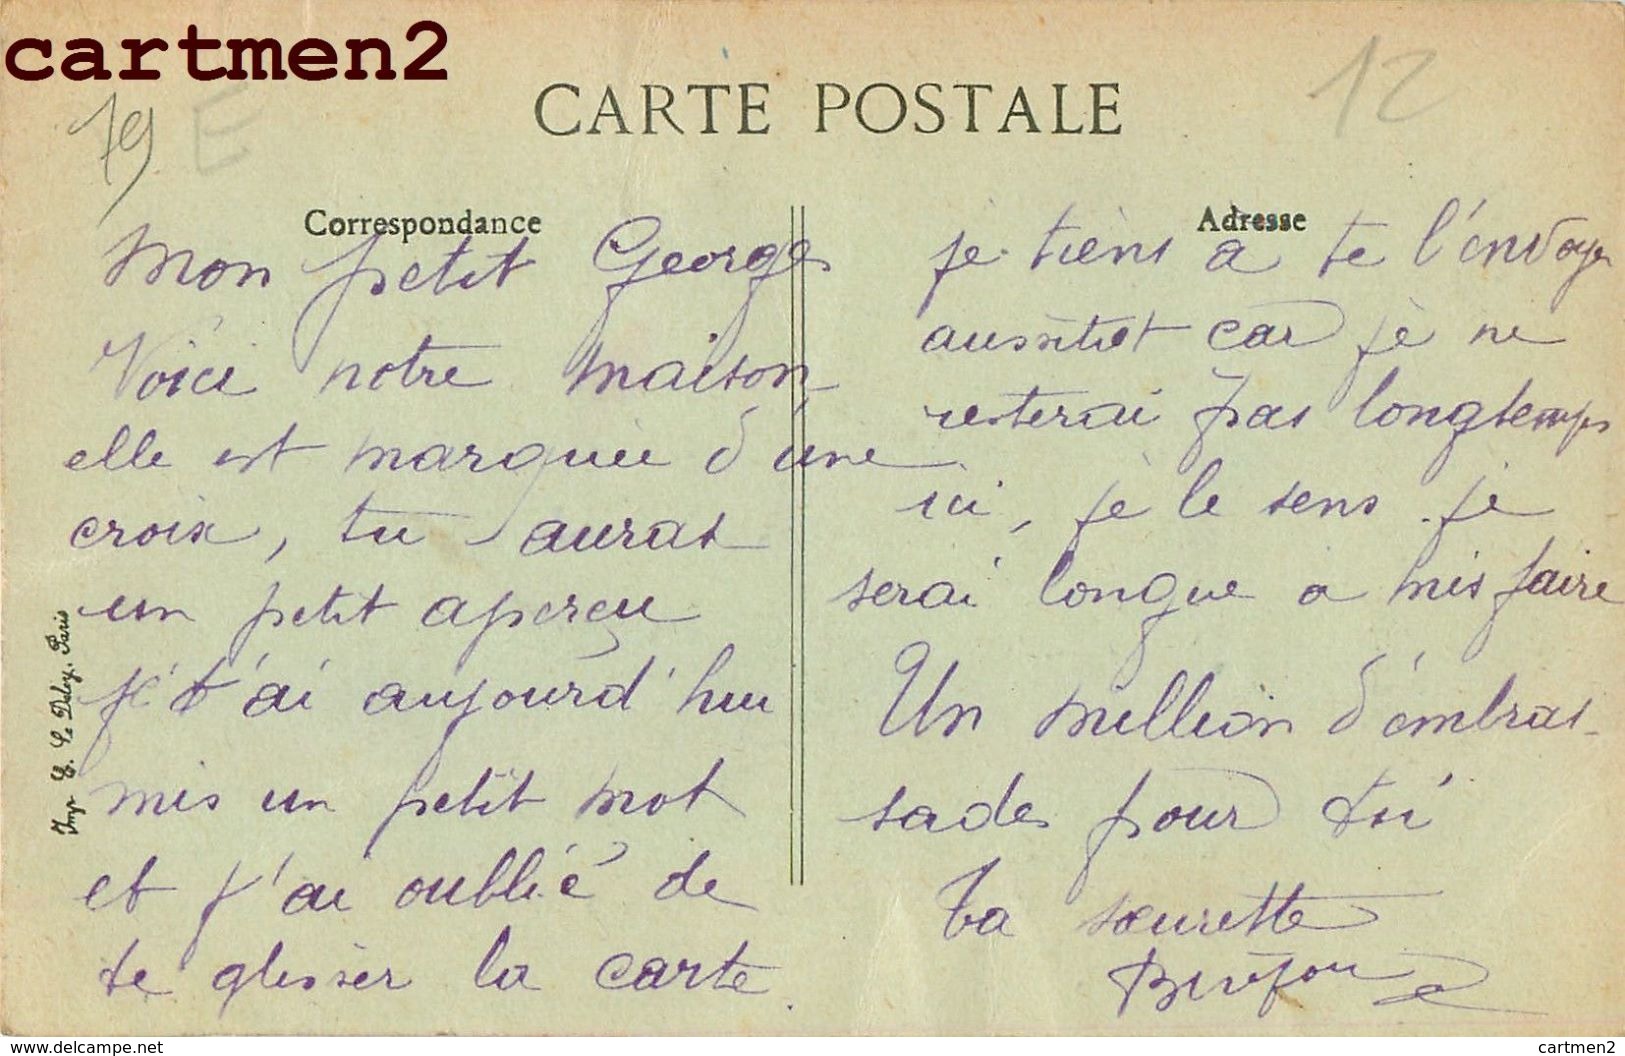 cartmen2
CARTE POSTALE
12
79 E
Correspondance
Mon petit Georges
Voici notre maison
elle est marquée d'une
croix, tu auras
un petit aperçu
je t'ai aujourd'hui
mis un petit mot
et j'ai oublié de
te glisser la carte.
Imp. E. Le Deley, Paris
Adresse
je tiens a te l'envoyer
aussitot car je ne
resterai pas longtemps
ici, je le sens je
serai longue a m'is faire
Un million d'embras-
sades pour toi
Ta sœurette
www.delcampe.net
cartmen2